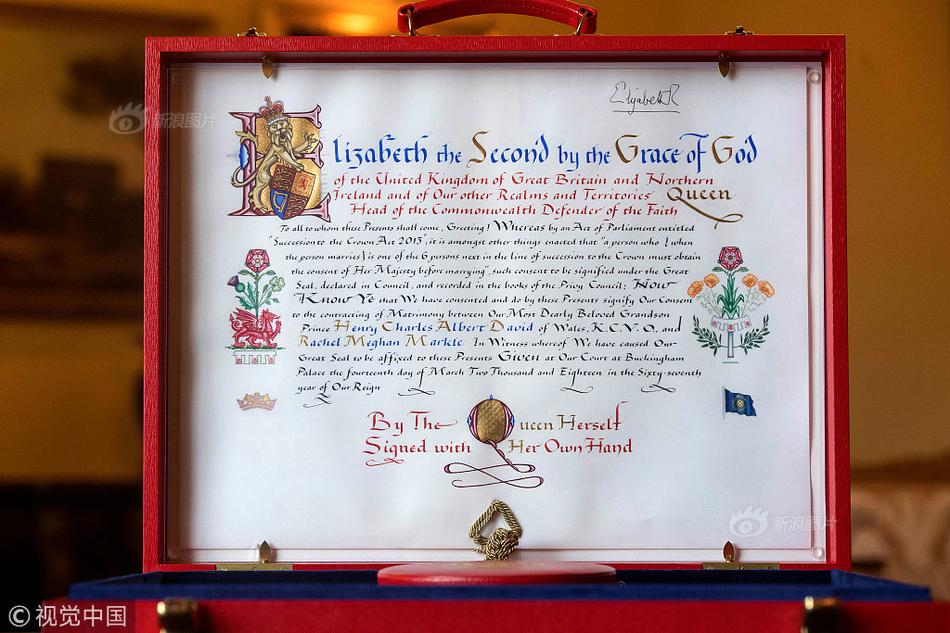 ElizabethR
Elizabeth the Second by the Grace of God
of the United Kingdom of Great Britain and Northern
Ireland and of Our other Realms and Territories Queen
Head of the Commonwealth Defender of the Faith
To all to whom these Presents shall come, Greeting! Whereas by an Act of Parliament entitled
"Succession to the Crown Act 2013", it is amongst other things enacted that "a person who {when
the person marries} is one of the 6 persons next in the line of succession to the Crown must obtain
the consent of Her Majesty before marrying", such consent to be signified under the Great
Seal, declared in Council, and recorded in the books of the Privy Council; Now
Know Ye that We have consented and do by these Presents signify Our Consent
to the contracting of Matrimony between Our Most Dearly Beloved Grandson
Prince Henry Charles Albert David of Wales, K.C.V.O., and
Rachel Meghan Markle In Witness whereof We have caused Our
Great Seal to be affixed to these Presents Given at Our Court at Buckingham
Palace the fourteenth day of March Two Thousand and Eighteen in the Sixty-seventh
year of Our Reign
By The Queen Herself
Signed with Her Own Hand
新浪图片
新浪图片
© 视觉中国